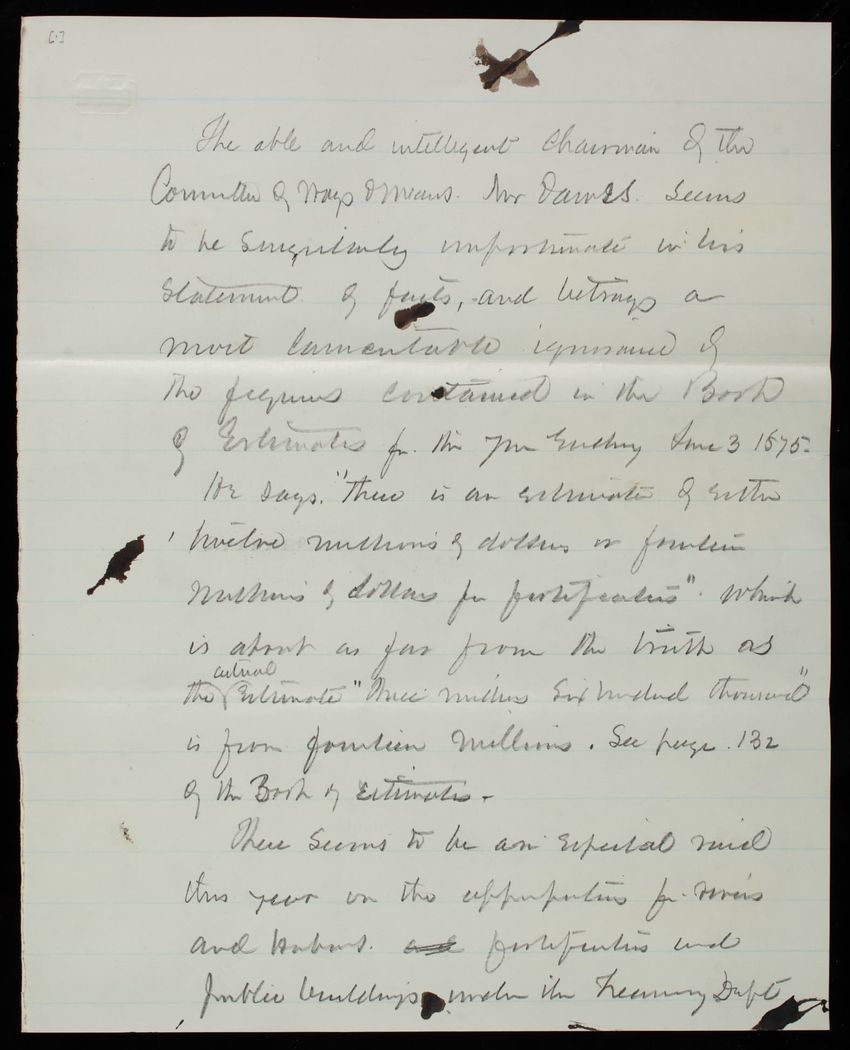 [1]
The able and intelligent Chairman of the
Committee of Ways & Means. Mr Dawes. seems
to be singularly unfortunate in his
statement of facts, and betrays a
most lamentable ignorance of
the figures contained in the Book
of Estimates for the year Ending June 3 1875-
He says. "There is an estimate of either
twelve millions of dollars or fourteen
millions of dollars for fortifications". Which
is about as far from the truth as
the actual Estimate "three million Six hundred thousand"
is from fourteen millions. See page. 132
of the Book of Estimates.-
There seems to be an especial raid
this year on the appropriations for rivers
and harbors. and fortifications and
public buildings under the Treasury Dept